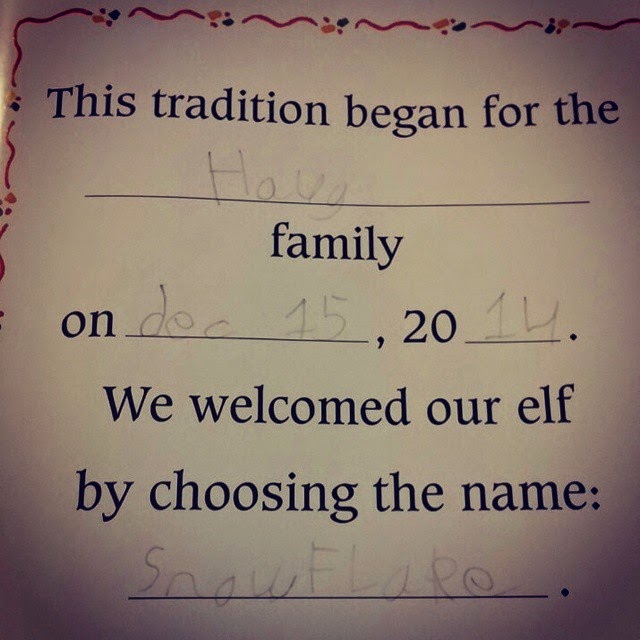 This tradition began for the
Haug
family
on dec 15, 2014.
We welcomed our elf
by choosing the name:
SnowFLake.